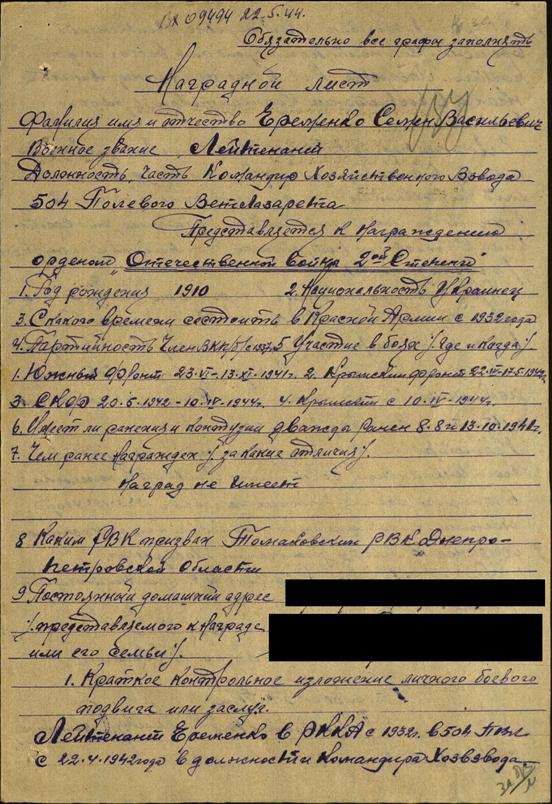 Вх 09494 22.5.44.
Обязательно все графы заполнять
Наградной лист
Фамилия имя и отчество Еременко Семен Васильевич
Военное звание Лейтенант
Должность, часть Командир Хозяйственного Взвода
504 Полевого Ветлазарета
Представляется к награждению
орденом "Отечественной Войны 2ой Степени"
1. Год рождения 1910 2. Национальность Украинец
3. С какого времени состоит в Красной Армии с 1932 года
4. Партийность Член ВКП/б/ с 1937. 5 Участие в боях /где и когда/.
1. Южный Фронт 23-VI-13-XI-1941г. 2. Крымский фронт
3. СКФ 20-5-1942-10-IV-1944г. 4. Крымский с 10-IV-1944г.
6. Имеет ли ранения и контузии дважды ранен 8.8 и 13.10.1941г.
7. Чем ранее награжден /за какие отличия/.
Наград не имеет
8 Каким РВК призван Томаковским РВК Днепро-
петровской области
9 Постоянный домашний адрес
/представляемого к награде
или его семьи/.
1. Краткое контрольное изложение личного боевого
подвига или заслуг.
Лейтенант Еременко в РККА с 1932г. в 504 ПВЛ
с 22.4.1942 года в должности Командира Хозвзвода.